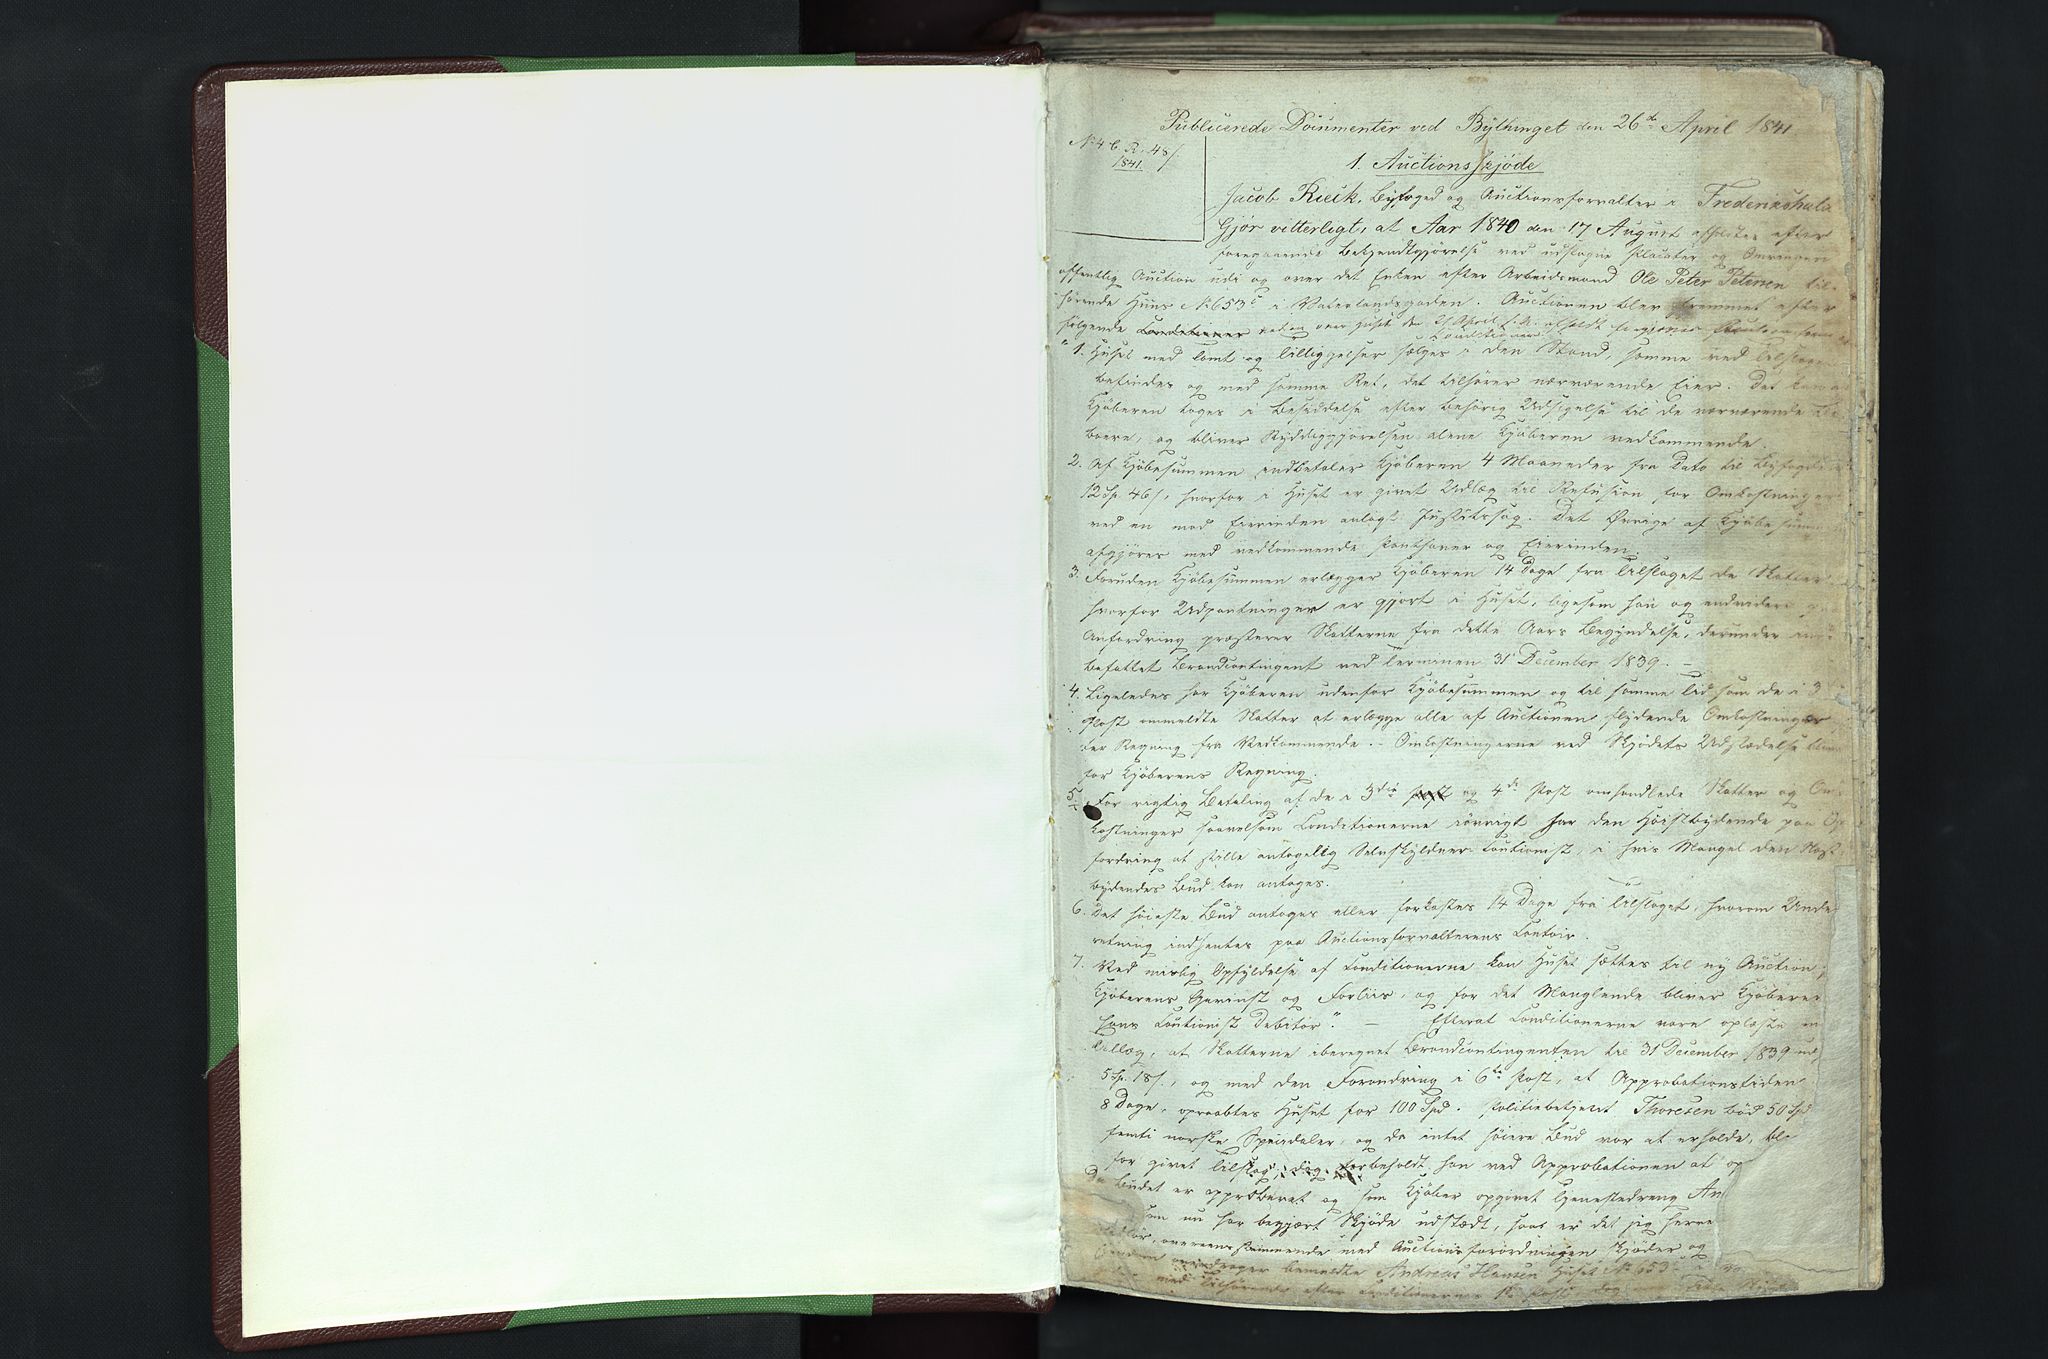 Publicerede Documenter ved Bythinget den 26de April 1841
No 46 R. 48/.
1841.
1. Auctionsskjøde
Jacob Rieck, Byfoged og Auctionsforvalter i Frederikshald
Gjør vitterligt, at Aar 1840 den 17 August afholdtes efter
foregaaende Bekjendtgjørelse ved udslagne Placater og
offentlig Auction udi og over det Enken efter Arbeidsmand Ole Peter Petersen til-
hørende Huus No 653 i Vaterlandsgaden. Auctionen blev fremmet efter
følgende
"1. Huset med Tomt og Tilliggelser sælges i den Stand, samme ved Tilslaget
befindes og med samme Ret, det tilhører nærværende Eier. Det kan af
Kjøberen tages i Besiddelse efter behørig Udsigelse til de nærværende Be-
boere, og bliver Ryddiggjørelsen alene Kjøberen vedkommende.
2. Af Kjøbesummen indbetaler Kjøberen 4 Maaneder fra Dato til Byfogden
12 Sp. 46/, hvorfor i Huset er givet Udlæg til Refusion for Omkostninger
ved en mod Eierinden anlagt Justitssag. Det Øvrige af Kjøbesummen
afgjøres med vedkommende Panthaver og Eierinden.
3. Foruden Kjøbesummen erlægger Kjøberen 14 Dage fra Tilslaget de Skatter
hvorfor Udpantninger er gjort i Huset, ligesom han og endvidere paa
Anfordring præsterer Skatterne fra dette Aars Begyndelse, derunder ind-
befattet Brandcontingent ved Terminen 31 December 1839. —
4. Ligeledes har Kjøberen udenfor Kjøbesummen og til samme Tid som de i 3die
Post ommeldte Skatter at erlægge alle af Auctionen flydende Omkostninger
der Regning fra Vedkommende. - Omkostningerne ved Skjødets Udstædelse bliver
for Kjøberens Regning.
5. For rigtig Betaling af de i 3die og 4de Post omhandlede Skatter og Om-
kostninger saavelsom Conditionerne iøvrigt har den Høistbydende paa Op-
fordring at stille antagelig Selvskyldner Cautionist, i hvis Mangel den Næst-
bydendes Bud kan antages.
6. Det høieste Bud antages eller forkastes 14 Dage fra Tilslaget, hvorom Under-
retning indhentes paa Auctionsforvalterens Contoir.
7. Ved mislig Opfyldelse af Conditionerne kan Huset sættes til ny Auction,
Kjøberens Gevinst og Forliis, og for det Manglende bliver Kjøberen
hans Cautionist Debitor". — Efterat Conditionerne vare oplæste
Tillæg, at Skatterne iberegnet Brandcontingenten til 31 December 1839
5 Sp. 18/., og med den Forandring i 6te Post, at Approbationstiden
8 Dage, opraabtes Huset for 100 Spd. Politiebetjent Thoresen bød 50 Spd
femti norske Speciedaler, og da intet høiere Bud var at erholde, bl
for givet Tilslag, forbeholdt han ved Approbationen at op
Da Budet er approberet og som Kjøber opgivet An
som nu har begjært Skjøde udstædt, saa er det jeg herve
overeensstemmende med Auctionsforordningen skjøder og
overdrager bemeldte Andreas Hansen Huset No 653
med Tilhørende efter Conditionernes